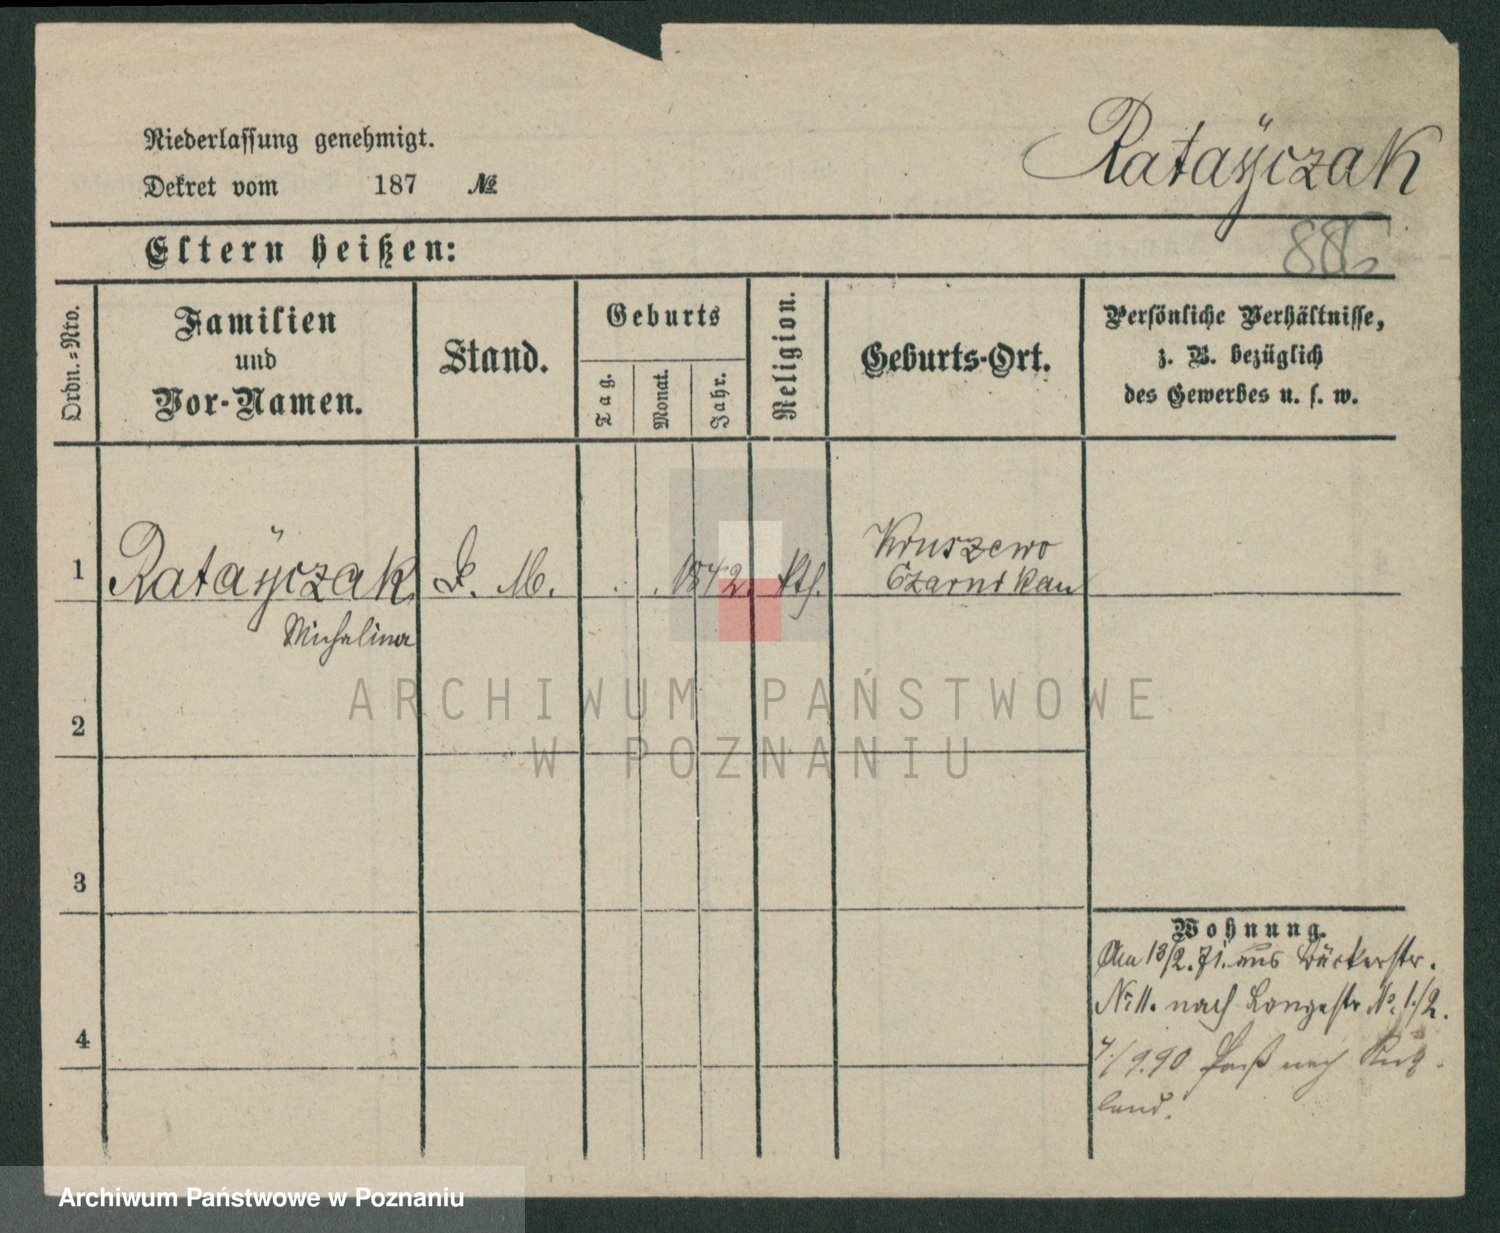 Niederlassung genehmigt.
Dekret vom 187 №
Rataÿczak
Eltern heißen:
Ordn.=Nro.
Familien
und
Vor-Namen.
Stand.
Geburts
Tag.
Monat.
Jahr.
Religion.
Geburts-Ort.
Persönliche Verhältnisse,
z. B. bezüglich
des Gewerbes u. s. w.
1 Rataÿczak D. M. 1842. kth. Kruszewo
Czarnikau
Michalina
ARCHIWUM PAŃSTWOWE
W POZNANIU
2
3
4
Wohnung.
Am 13/2. 71. aus Bäckerstr.
Nr 11. nach Langestr № 1/2.
4/9.90 Paß nach Ruß-
land.
Archiwum Państwowe w Poznaniu